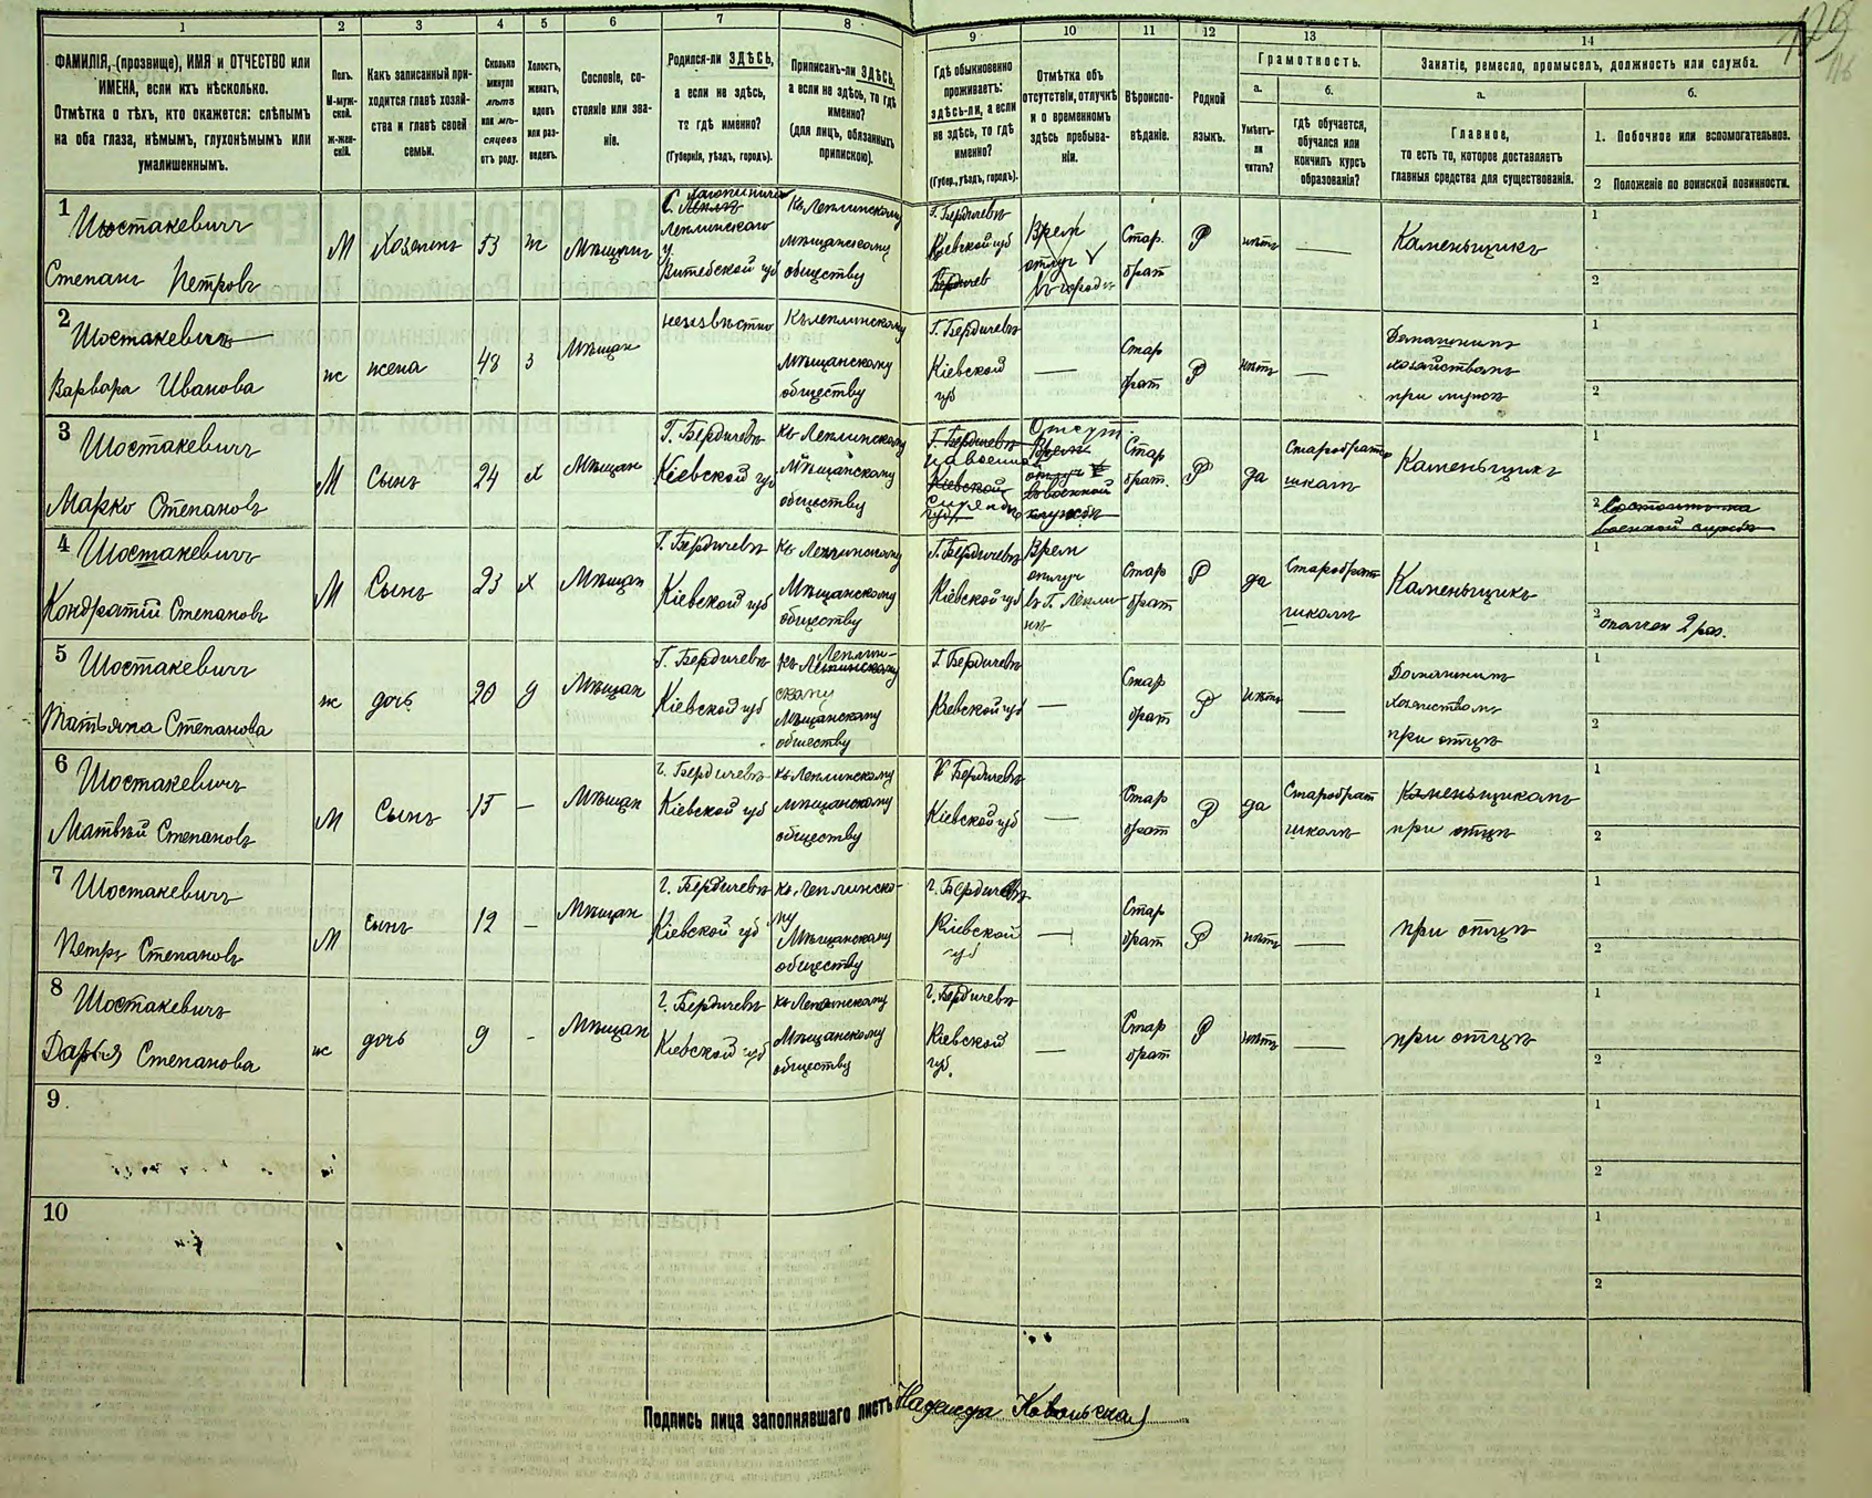 1 2 3 4 5 6 7 8 9 10 11 12 13 14
ФАМИЛІЯ, (прозвище), ИМЯ и ОТЧЕСТВО или
ИМЕНА, если ихъ нѣсколько.
Отмѣтка о тѣхъ, кто окажется: слѣпымъ
на оба глаза, нѣмымъ, глухонѣмымъ или
умалишеннымъ.
Полъ.
М-муж-
ской.
ж-жен-
скій.
Какъ записанный при-
ходится главѣ хозяй-
ства и главѣ своей
семьи.
Сколько
минуло
лѣтъ
или мѣ-
сяцевъ
отъ роду.
Холостъ,
женатъ,
вдовъ
или раз-
веденъ.
Сословіе, со-
стояніе или зва-
ніе.
Родился-ли ЗДѢСЬ,
а если не здѣсь,
то гдѣ именно?
(Губернія, уѣздъ, городъ).
Приписанъ-ли ЗДѢСЬ,
а если не здѣсь, то гдѣ
именно?
(для лицъ, обязанныхъ
припискою).
Гдѣ обыкновенно
проживаетъ:
здѣсь-ли, а если
не здѣсь, то гдѣ
именно?
(Губер., уѣздъ, городъ).
Отмѣтка объ
отсутствіи, отлучкѣ
и о временномъ
здѣсь пребыва-
ніи.
Вѣроиспо-
вѣданіе.
Родной
языкъ.
Грамотность.
а.
Умѣетъ-
ли
читать?
б.
Гдѣ обучается,
обучался или
кончилъ курсъ
образованія?
Занятіе, ремесло, промыселъ, должность или служба.
а.
Главное,
то есть то, которое доставляетъ
главныя средства для существованія.
б.
1. Побочное или вспомогательное.
2 Положеніе по воинской повинности.
1
Шостакевичъ
Степанъ Петровъ
М
Хозяинъ
53
ж
Мѣщанинъ
Лепельскаго
у.
Витебской губ
Къ Лепелинскому
мѣщанскому
обществу
Г. Бердичевъ
Кіевской губ
Бердичев
Врем
отлуч
въ городѣ
Стар.
брат
Р
нѣтъ
—
Каменьщикъ
1
2
2
Шостакевичъ
Варвара Иванова
ж
жена
48
з
Мѣщан
неизвѣстно
Къ лепелинскому
мѣщанскому
обществу
Г. Бердичевъ
Кіевской
губ
—
Стар
брат
Р
нѣтъ
—
Домашнимъ
хозяйствомъ
при мужѣ
1
2
3
Шостакевичъ
Марко Степановъ
М
Сынъ
24
х
Мѣщан
Г. Бердичевъ
Кіевской губ
Къ Лепелинскому
Мѣщанскому
обществу
Г. Бердичевъ
на военной
Кіевской
службѣ
губ.
Отсут.
Врем
отлуч
въ военной
службѣ
Стар
брат.
Р
да
Старобрат
школѣ
Каменьщикъ
1
2 Состоитъ на
военной службѣ
4
Шостакевичъ
Кондратій Степановъ
М
Сынъ
23
х
Мѣщан
Г. Бердичевъ
Кіевской губ
Къ Лепелинскому
Мѣщанскому
обществу
Г. Бердичевъ
Кіевской губ
Врем
отлуч
Стар
брат
Р
да
Старобрат
школѣ
Каменьщикъ
1
2 ополчен 2 раз.
5
Шостакевичъ
Татьяна Степанова
ж
дочь
20
д
Мѣщан
Г. Бердичевъ
Кіевской губ
Лепелин-
скому
Мѣщанскому
обществу
Г. Бердичевъ
Кіевской губ
—
Стар
брат
Р
нѣтъ
—
Домашнимъ
хозяйствомъ
при отцѣ
1
2
6
Шостакевичъ
Матвѣй Степановъ
М
Сынъ
15
—
Мѣщан
г. Бердичевъ
Кіевской губ
къ Лепелинскому
мѣщанскому
обществу
Г Бердичевъ
Кіевской губ
—
Стар
брат
Р
да
Старобрат
школѣ
Каменьщикомъ
при отцѣ
1
2
7
Шостакевичъ
Петръ Степановъ
М
сынъ
12
—
Мѣщан
г. Бердичевъ
Кіевской губ
къ Лепелинско-
му
Мѣщанскому
обществу
г. Бердичевъ
Кіевской
губ
—
Стар
брат
Р
нѣтъ
—
при отцѣ
1
2
8
Шостакевичъ
Дарья Степанова
ж
дочь
9
-
Мѣщан
г. Бердичевъ
Кіевской губ
къ Лепелинскому
Мѣщанскому
обществу
г. Бердичевъ
Кіевской
губ.
—
Стар
брат
Р
нѣтъ
—
при отцѣ
1
2
9
1
2
10
1
2
Подпись лица заполнявшаго листъ Надежда Ковальская